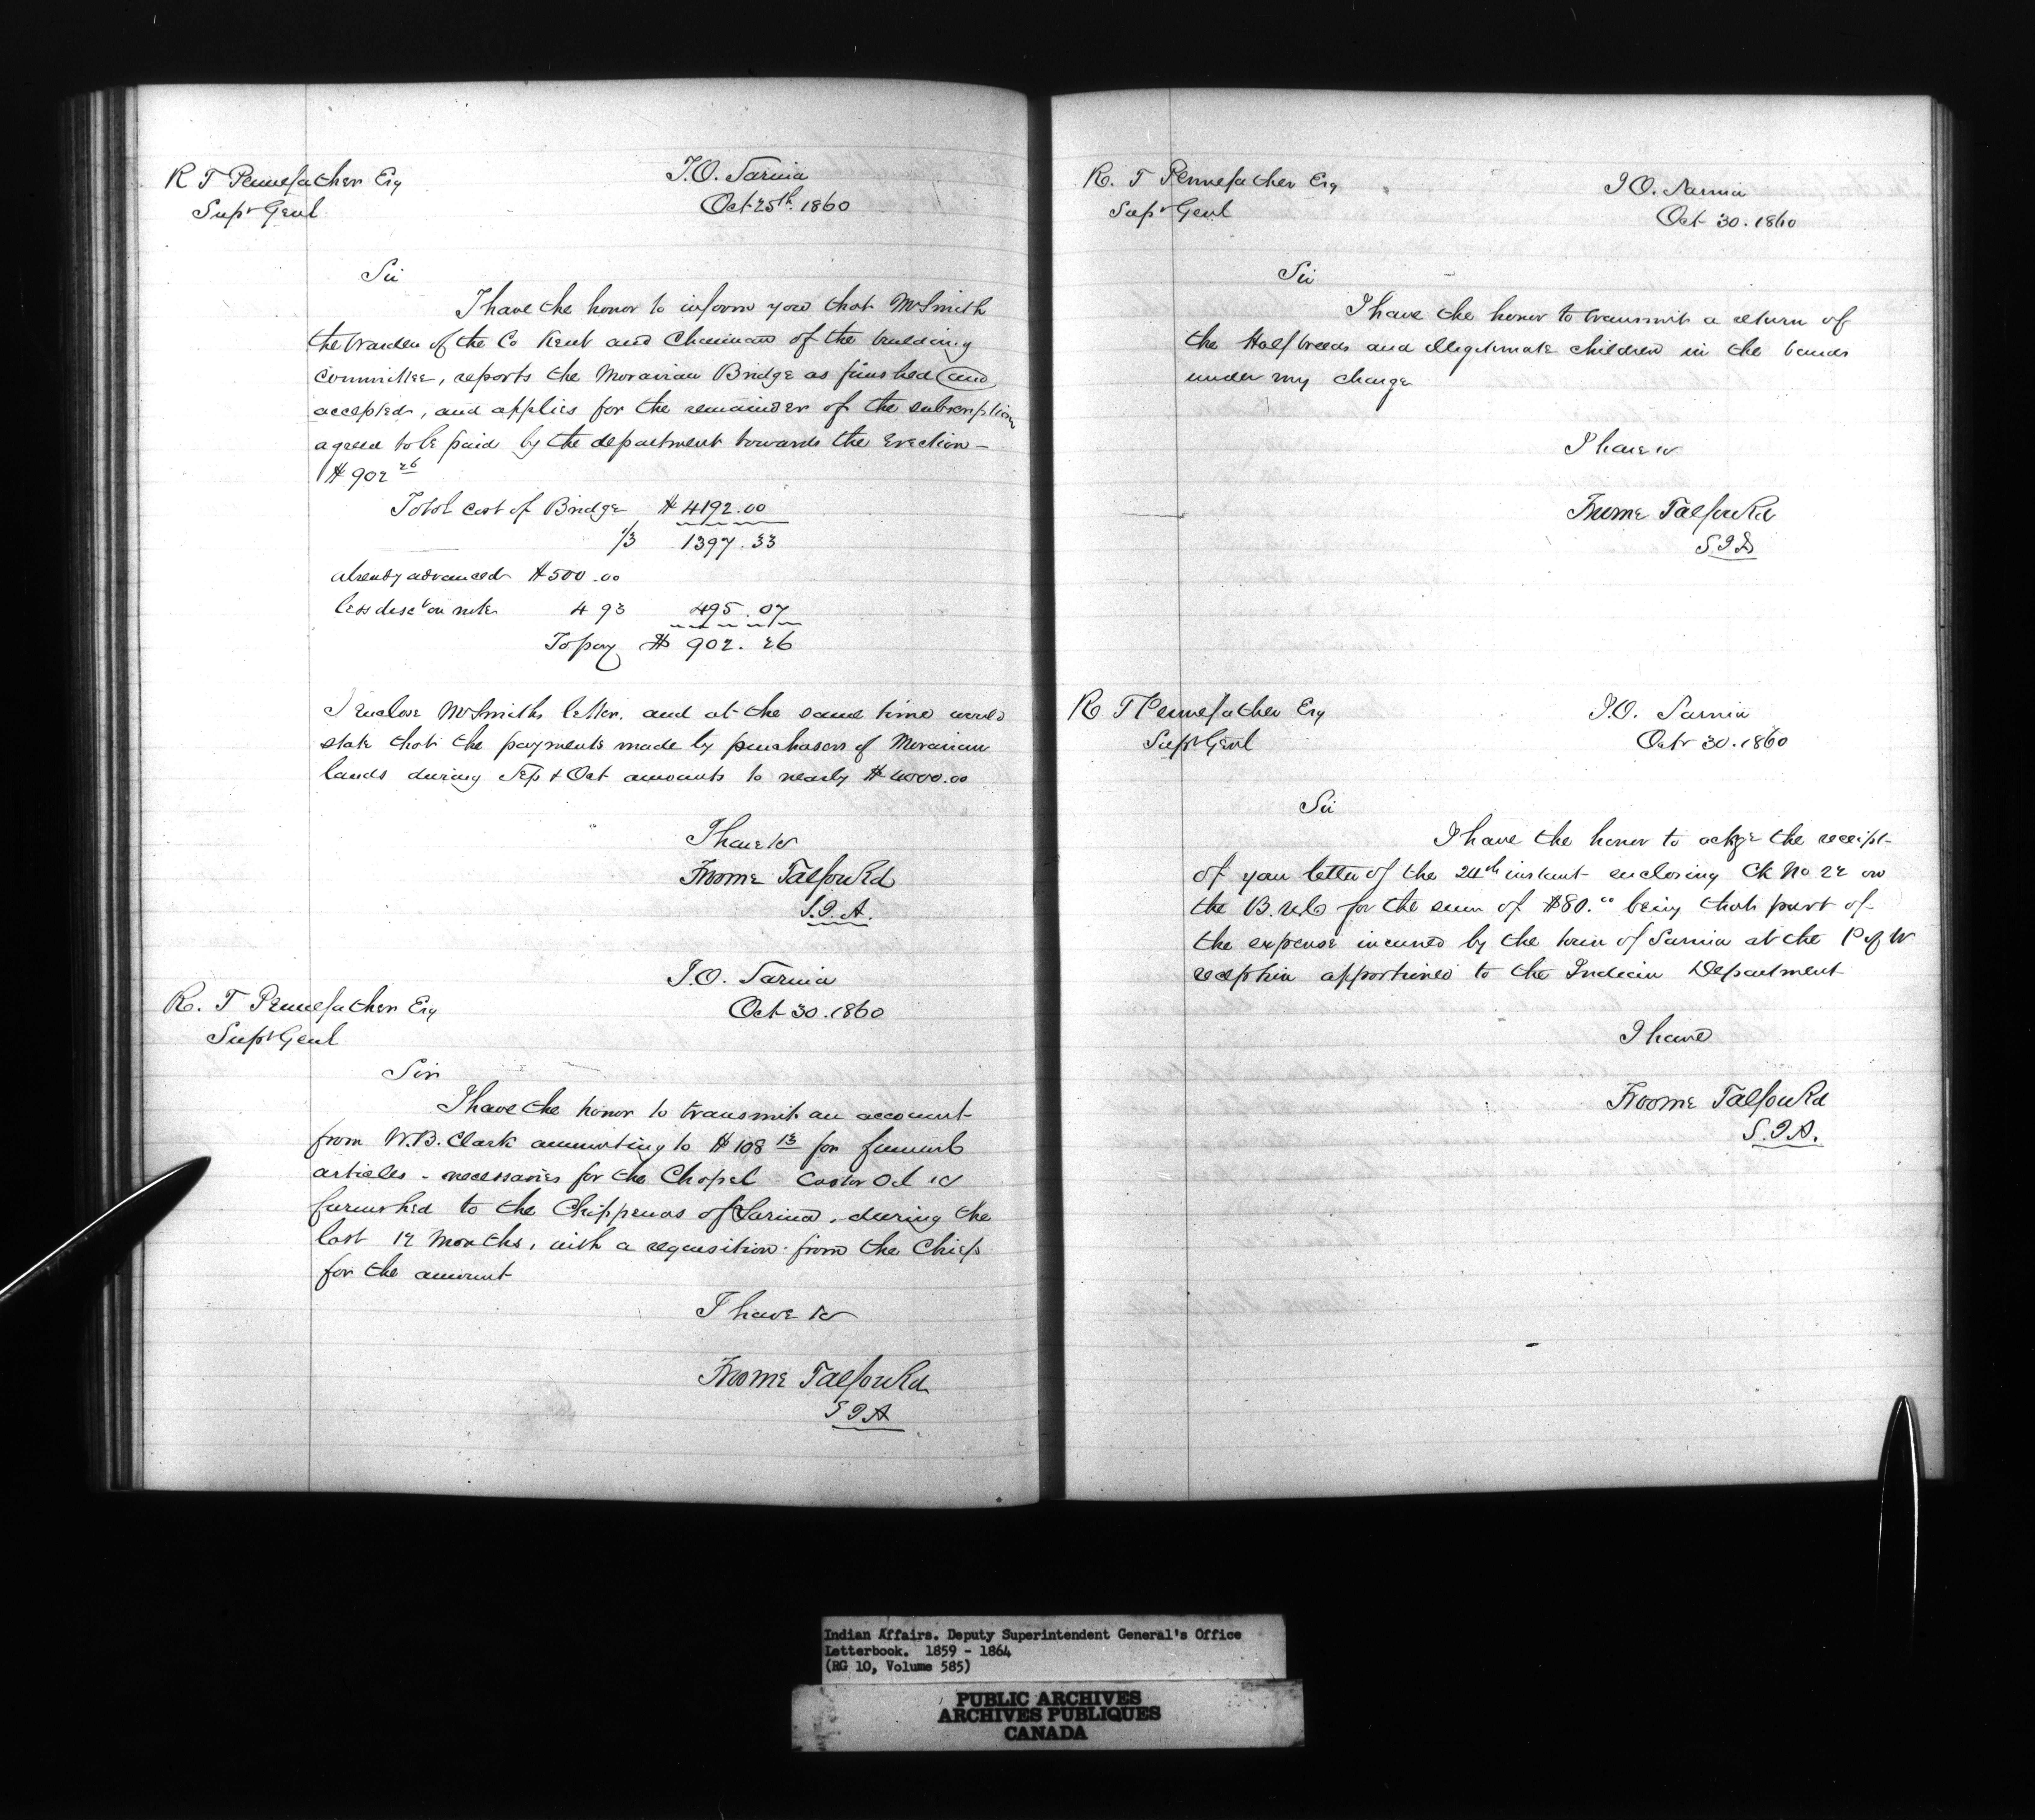 R T Pennefather Esq
Supt Genl
I.O. Sarnia
Oct 25th. 1860
Sir
I have the honor to inform you that Mr Smith
the Warden of the Co Kent and Chairman of the building
committee, reports the Moravian Bridge as finished and
accepted, and applies for the remainder of the subscription
agreed to be paid by the department towards the Erection -
$902 26
Total cost of Bridge $4192.00
1/3 1397.33
already advanced $500.00
less disct on note 4 93 495.07
To pay $ 902.26
I enclose Mr Smiths letter. and at the same time would
state that the payments made by purchasers of Moravian
lands during Sep & Oct amounts to nearly $4000.00
I have &c
Froome Talfourd
S.I.A.
I.O. Sarnia
Oct 30. 1860
R. T Pennefather Esq
Supt Genl
Sir
I have the honor to transmit an account
from W.B. Clark amounting to $108 13 for funeral
articles - necessaries for the Chapel Castor Oil &c
furnished to the Chippewas of Sarnia, during the
last 12 Months, with a requisition from the Chiefs
for the amount
I have &c
Froome Talfourd
S I A
R. T Pennefather Esq
Supt Genl
I O. Sarnia
Oct 30. 1860
Sir
I have the honor to transmit a return of
the Half breeds and illegitimate children in the bands
under my charge
I have &c
Froome Talfourd
S I A
R T Pennefather Esq
Supt Genl
I.O. Sarnia
Octr 30. 1860
Sir
I have the honor to ackge the receipt
of your letter of the 24th instant enclosing Ck No 22 on
the B. U.C for the sum of $80.00 being that part of
the expense incurred by the town of Sarnia at the P of W
reception apportioned to the Indian Department
I have
Froome Talfourd
S.I.A.
Indian Affairs. Deputy Superintendent General's Office
Letterbook. 1859 - 1864
(RG 10, Volume 585)
PUBLIC ARCHIVES
ARCHIVES PUBLIQUES
CANADA